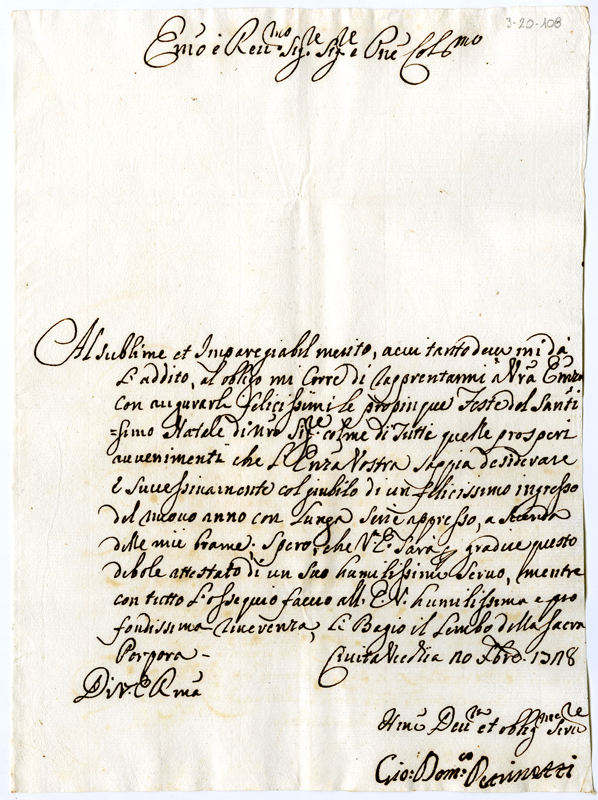 3-20-108
Emo e Reu:mo Sig.re Sig.re e Pne Colmo
Al sublime et Imparegiabil merito, a cui tanto deuo mi dà
L'addito, al obligo mi corre di rapprentarmi à Vra Emza
con augurarle felicissimi le propinque Feste del Santi
=ssimo Natale di Nro Sig.re colme di Tutte quelle prosperi
auuenimenti che L'Emza Vostra sappia desiderare
e successiuamente col giubilo di un felicissimo ingresso
del nuouo anno con lunga serie appresso, a seconda
delle mie brame: Spero, che V.E. sarà gradire questo
debole attestato di un Suo humilissimo Seruo, mentre
con tutto L'ossequio faccio all'E.V. humilissima e pro
fondissima riuerenza, Le Bagio il Lembo della Sacra
Porpora -
Ciuita Vecchia 20 Xbre 1718
Di V.E. Rma
Hmo Deu.mo et oblig.mo Serre
Gio: Dom.co